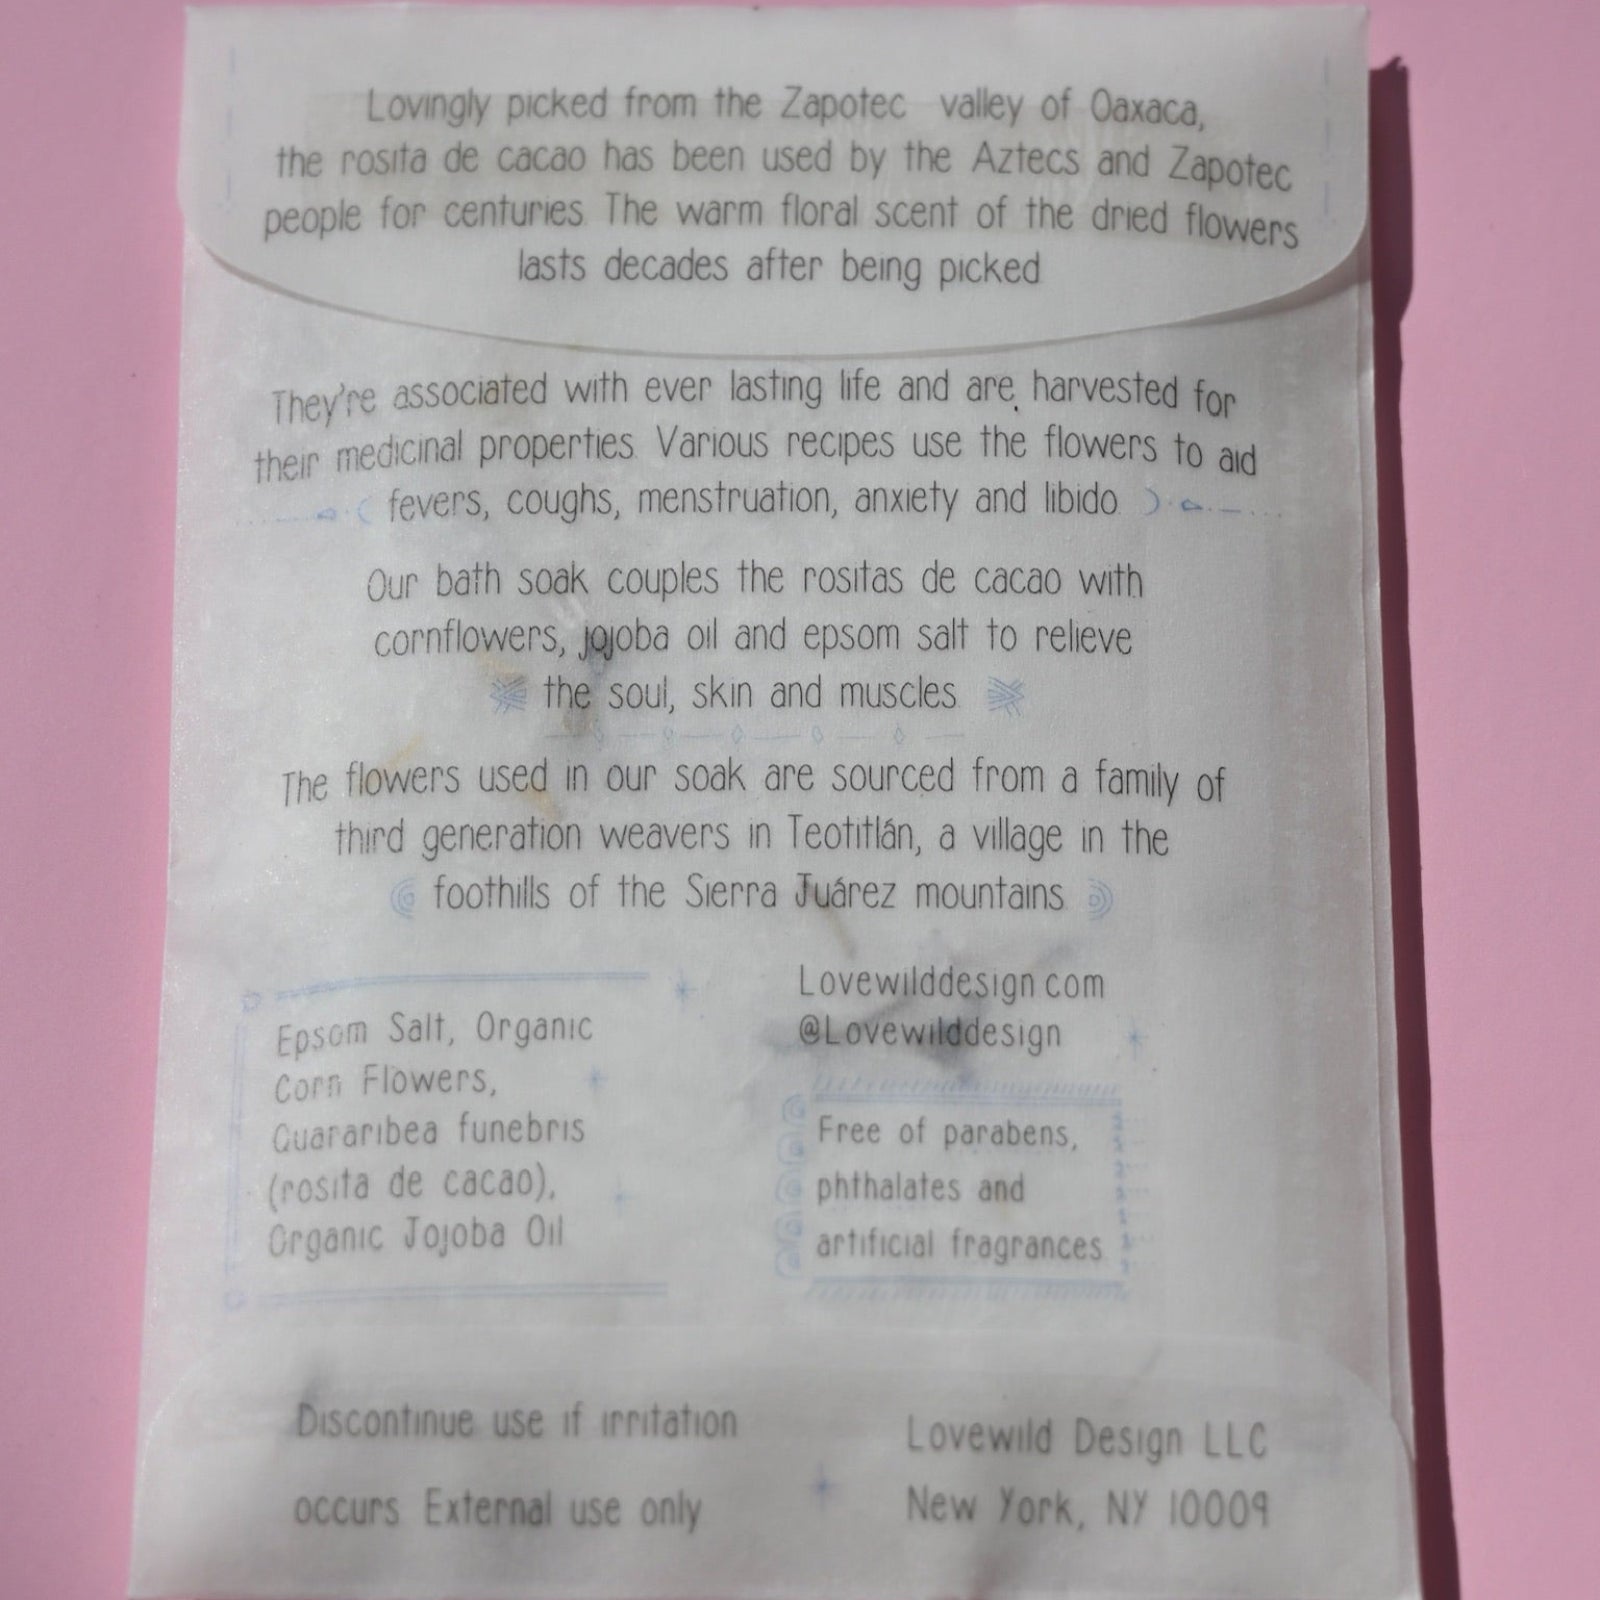 Lovingly picked from the Zapotec valley of Oaxaca,
the rosita de cacao has been used by the Aztecs and Zapotec
people for centuries The warm floral scent of the dried flowers
lasts decades after being picked
They're associated with ever lasting life and are harvested for
their medicinal properties Various recipes use the flowers to aid
fevers, coughs, menstruation, anxiety and libido
Our bath soak couples the rositas de cacao with
cornflowers, jojoba oil and epsom salt to relieve
the soul, skin and muscles
The flowers used in our soak are sourced from a family of
third generation weavers in Teotitlán, a village in the
foothills of the Sierra Juárez mountains
Epsom Salt, Organic
Corn Flowers,
Quararibea funebris
(rosita de cacao),
Organic Jojoba Oil
Lovewilddesign com
@Lovewilddesign
Free of parabens,
phthalates and
artificial fragrances
Discontinue use if irritation
occurs External use only
Lovewild Design LLC
New York, NY 10009